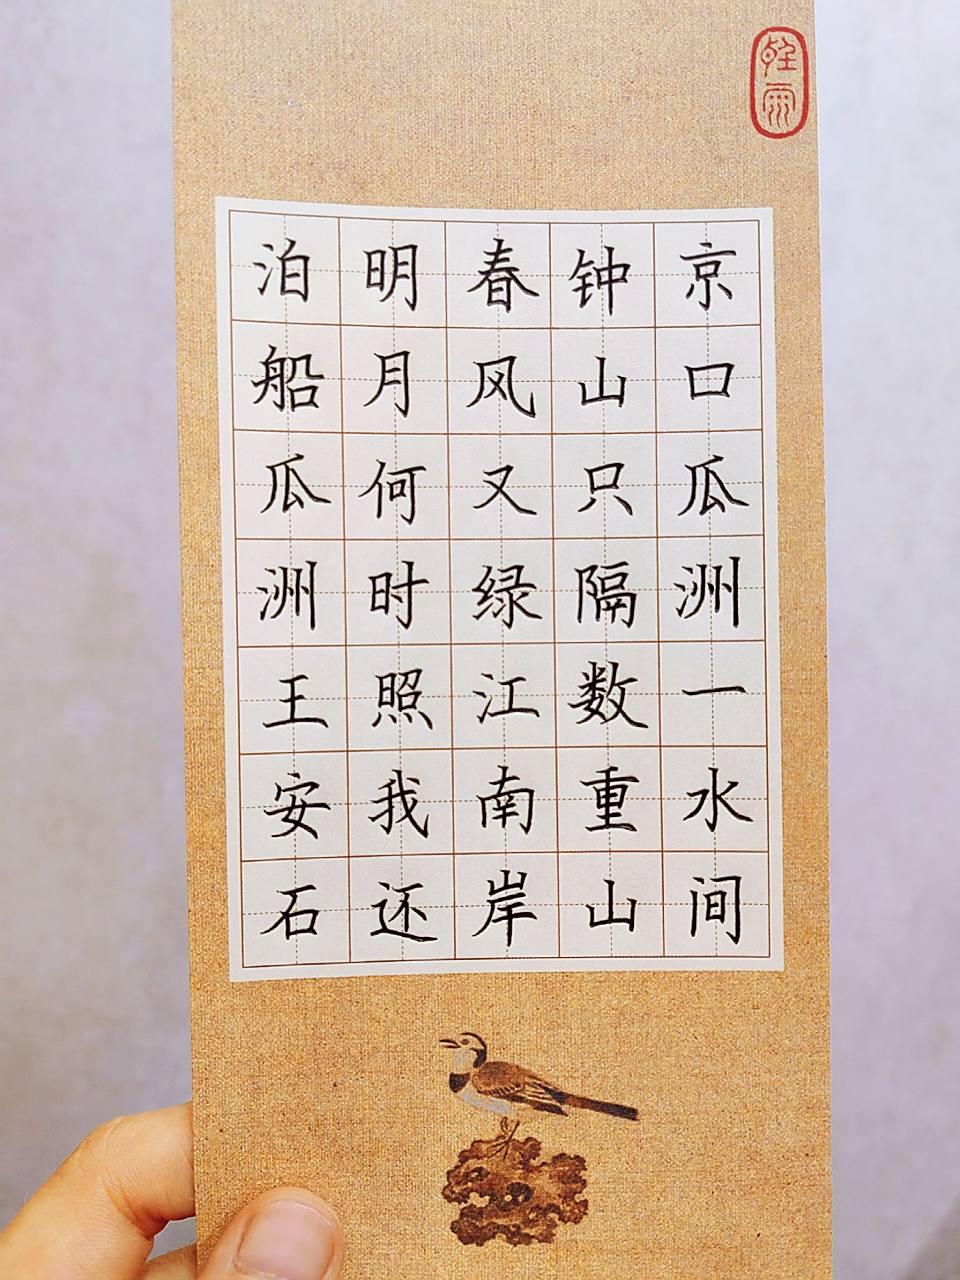 京口瓜洲一水间
钟山只隔数重山
春风又绿江南岸
明月何时照我还
泊船瓜洲王安石